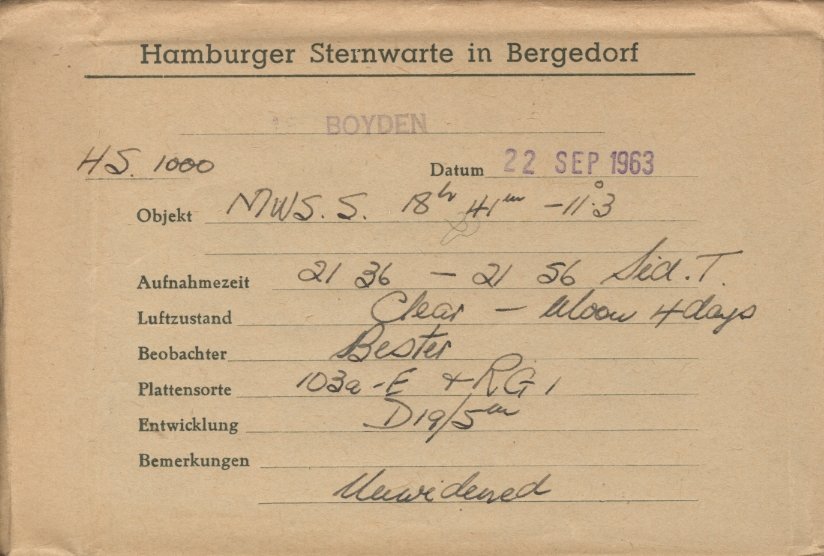 Hamburger Sternwarte in Bergedorf
BOYDEN
HS. 1000 Datum 22 SEP 1963
Objekt MWS. S. 18hr 41m -11°.3
Aufnahmezeit 21 36 - 21 56 Sid. T.
Luftzustand Clear - Moon 4 days
Beobachter Bester
Plattensorte 103a-E + RG 1
Entwicklung D19/5m
Bemerkungen
Unwidened